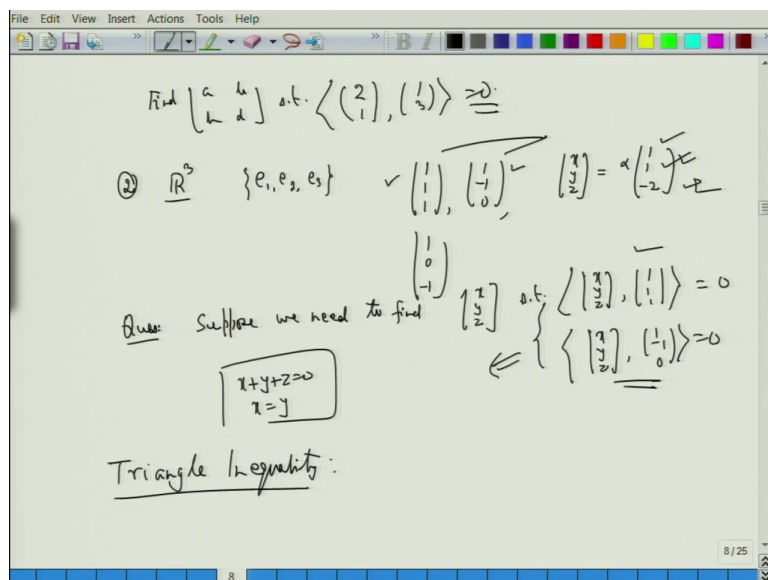 File Edit View Insert Actions Tools Help
B I
Find [a b; b d] s.t. ⟨(2 1), (1 3)⟩ = 0.
② ℝ³ {e₁, e₂, e₃} ✓ (1 1 1), (1 -1 0) ✓, [x y z] = α (1 1 -2)
(1 0 -1)
Ques: Suppose we need to find [x y z] s.t. { ⟨[x y z], (1 1 1)⟩ = 0
⟸ ⟨[x y z], (1 -1 0)⟩ = 0
x+y+z=0
x=y
Triangle Inequality:
8/25
8